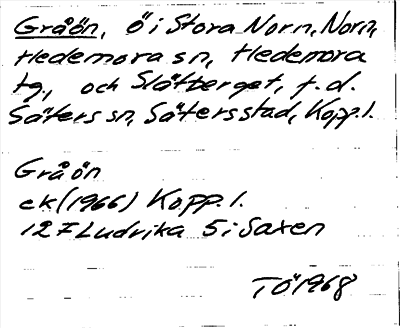 Gråön, ö i Stora Norn, Norn,
Hedemora sn, Hedemora
tg., och Slätberget, f.d.
Säters sn, Säters stad, Kopp. l.
Gråön
ek (1966) Kopp. l.
12F Ludvika 5i Saxen
TÖ 1968